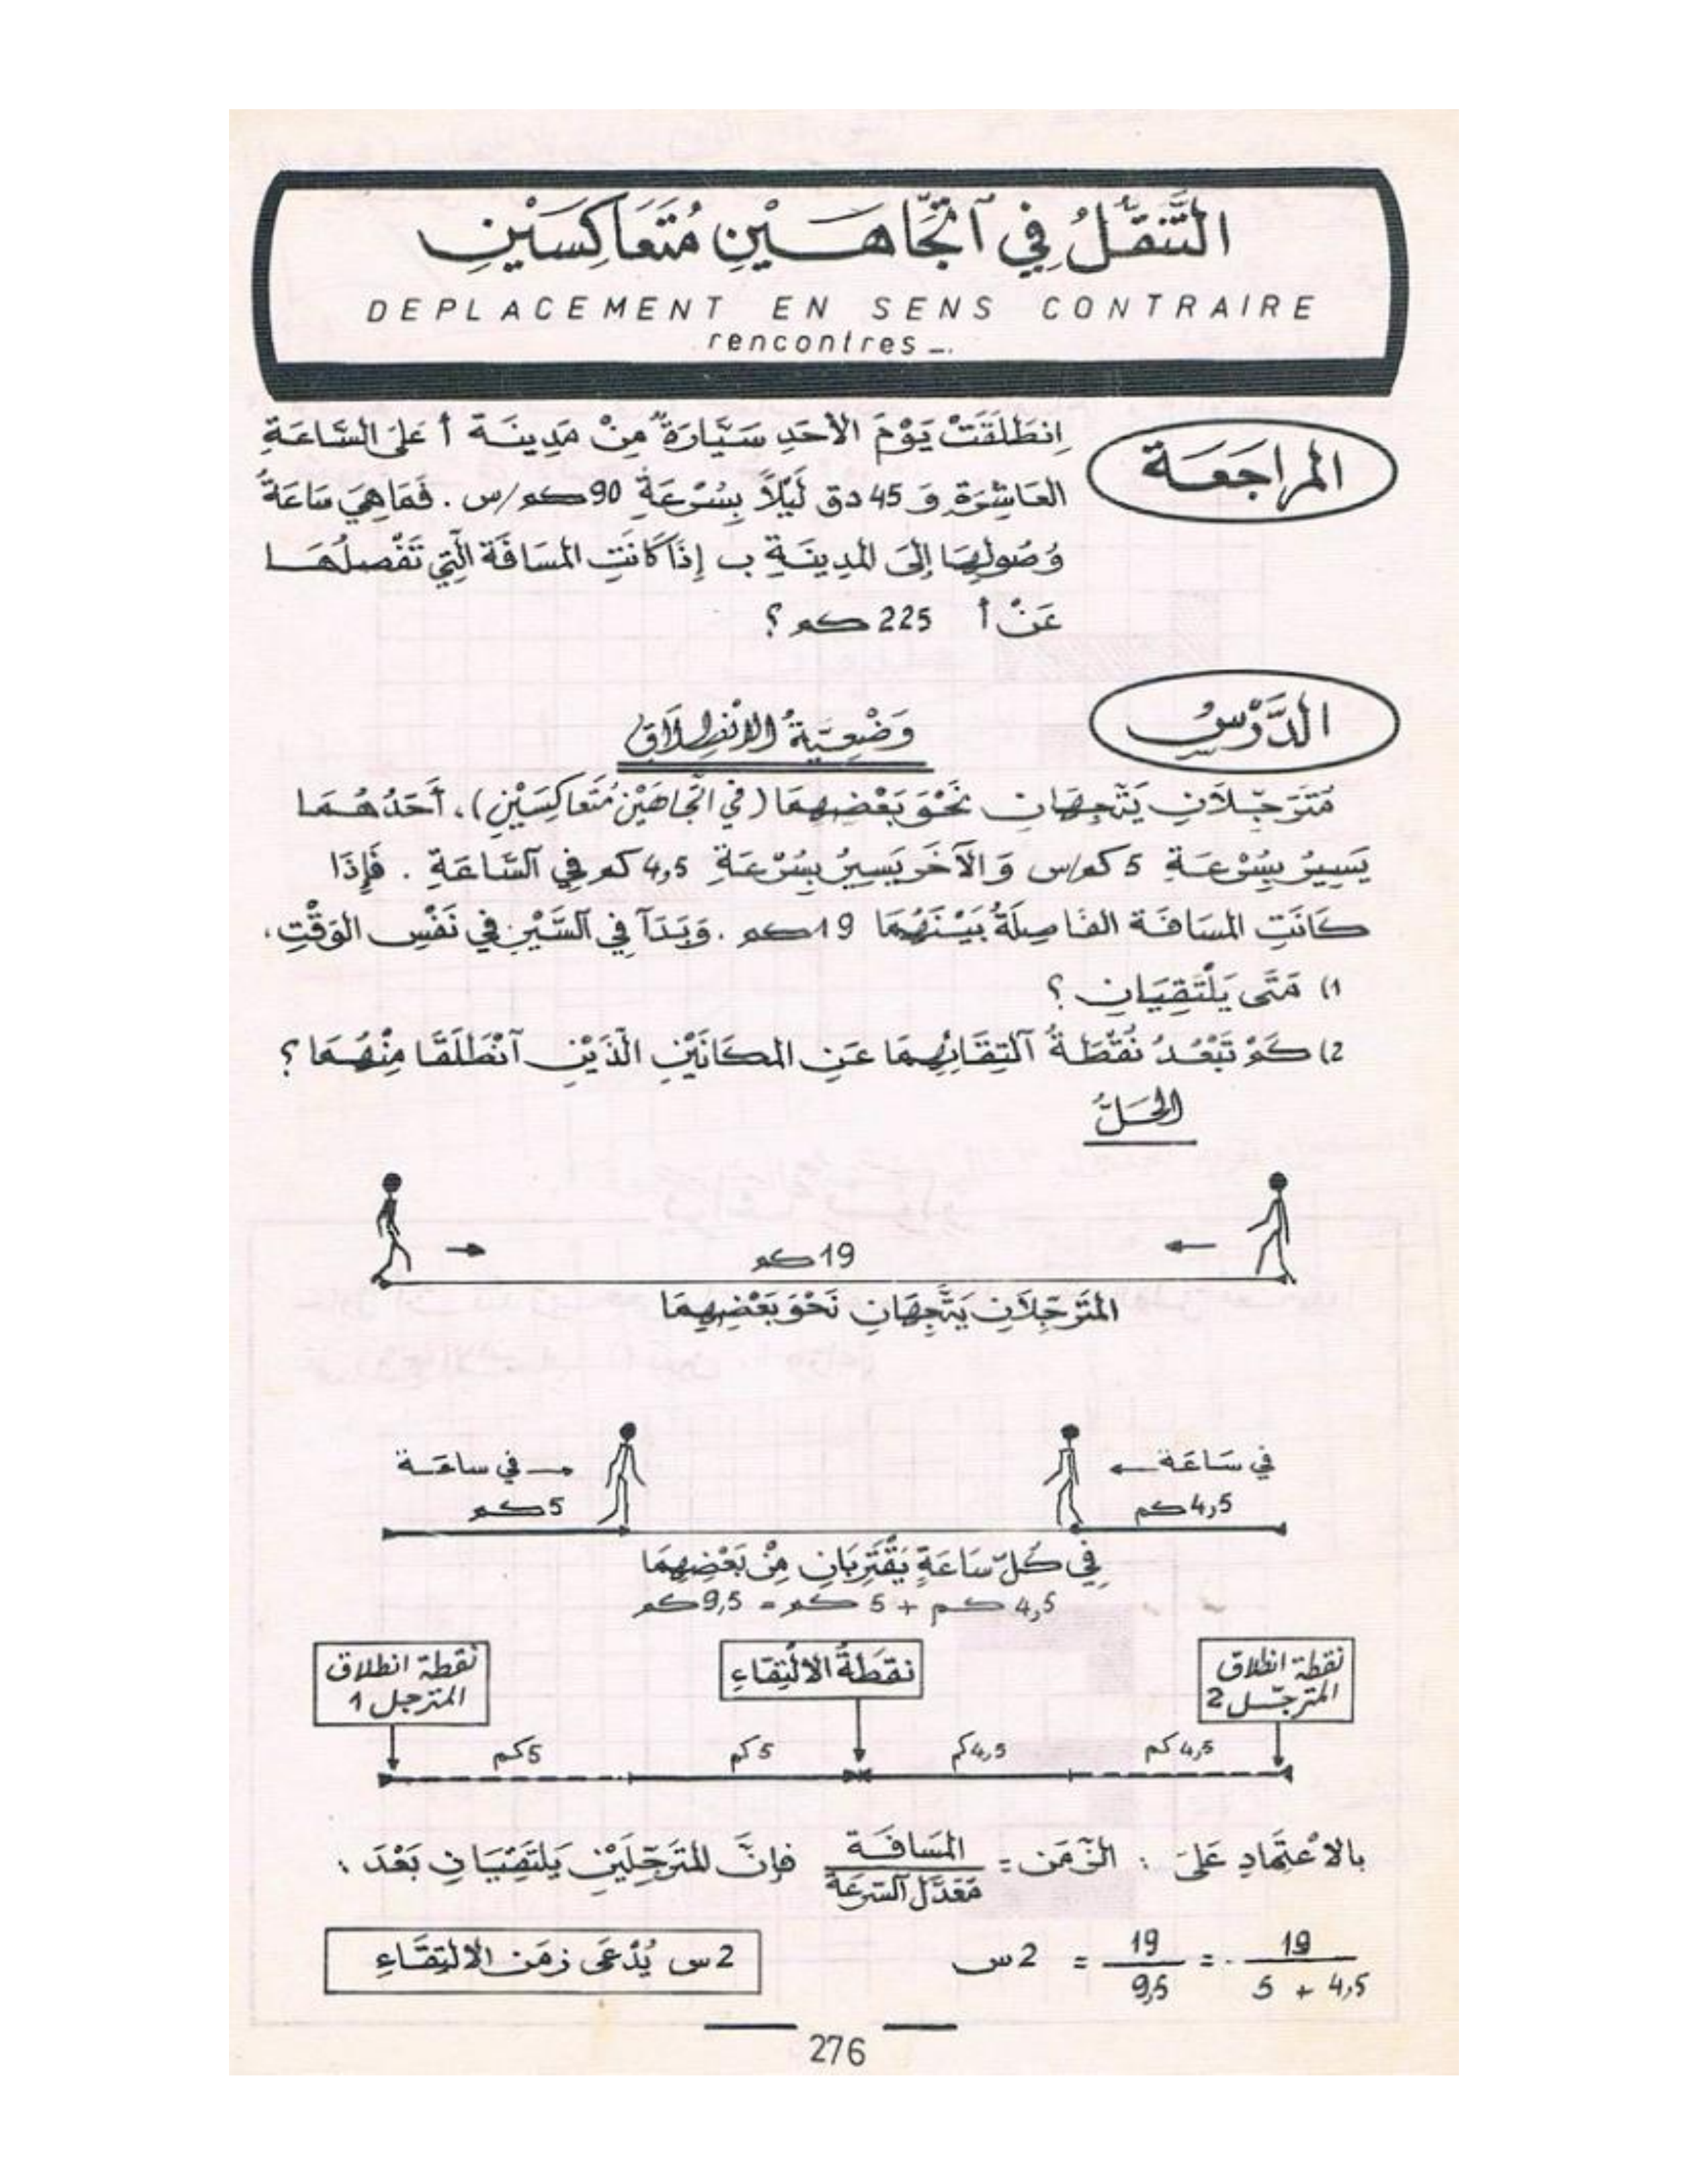 التَّنَقُّلُ فِي ٱتِّجَاهَيْنِ مُتَعَاكِسَيْنِ
DEPLACEMENT EN SENS CONTRAIRE
rencontres _.
المراجَعَة
اِنطَلَقَتْ يَوْمَ الأَحَدِ سَيَّارَةٌ مِنْ مَدِينَة أ عَلَى السَّاعَةِ
العَاشِرَةِ وَ 45 دق لَيْلاً بِسُرْعَةِ 90 كم/س . فَمَا هِيَ سَاعَةُ
وُصُولِهَا إِلَى المدِينَةِ ب إِذَا كَانَتِ المسَافَة الَّتِي تَفْصِلُهَا
عَنْ أ 225 كم ؟
الدَّرْسُ
وَضْعِيَّةُ الاِنْطِلاَقِ
مُتَرَجِّلاَنِ يَتَّجِهَانِ نَحْوَ بَعْضِهِمَا (فِي اتِّجَاهَيْنِ مُتَعَاكِسَيْنِ)، أَحَدُهُمَا
يَسِيرُ بِسُرْعَةِ 5 كم/س وَ الآخَر يَسِيرُ بِسُرْعَةِ 4,5 كم فِي ٱلسَّاعَةِ . فَإِذَا
كَانَتِ المسَافَة الفَاصِلَةُ بَيْنَهُمَا 19 كم . وَبَدَآ فِي ٱلسَّيْرِ فِي نَفْسِ الوَقْتِ،
1) مَتَى يَلْتَقِيَانِ ؟
2) كَمْ تَبْعُدُ نُقْطَةُ ٱلْتِقَائِهِمَا عَنِ المكَانَيْنِ الَّذَيْنِ ٱنْطَلَقَا مِنْهُمَا ؟
الحَلُّ
19 كم
المتَرَجِّلاَنِ يَتَّجِهَانِ نَحْوَ بَعْضِهِمَا
في سَاعَة ← في ساعَة →
4,5 كم 5 كم
فِي كُلِّ سَاعَةٍ يَقْتَرِبَانِ مِنْ بَعْضِهِمَا
4,5 كم + 5 كم = 9,5 كم
نقطة انطلاق المترجّل 2
نقطَةُ الالْتِقَاءِ
نقطة انطلاق المترجل 1
4,5 كم 4,5 كم 5 كم 5 كم
بالاعْتِمَادِ عَلَى : الزَّمَن = المَسَافَة / مَعَدَّل ٱلسّرعَة فإنَّ المتَرَجِّلَيْنِ يَلتَقِيَانِ بَعْدَ :
19 / 5 + 4,5 = 19 / 9,5 = 2 س
2 س يُدْعَى زمَن الالتِقَاءِ
276